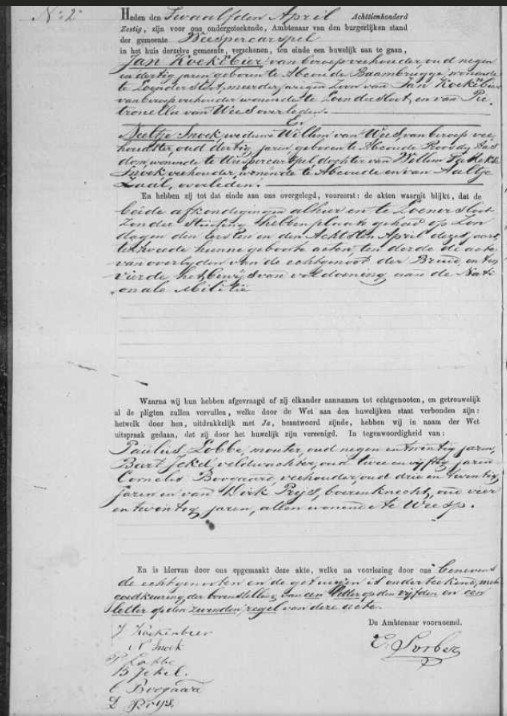 N: 2.
Heden den Twaalfden April Achttienhonderd
Zestig, zijn voor ons ondergeteekende, Ambtenaar van den burgerlijken stand
der gemeente Weespercarspel
in het huis derzelve gemeente, verschenen, ten einde een huwelijk aan te gaan,
Jan Kockebier van beroep veehouder, oud negen
en dertig jaren geboren te Abcoude Baambrugge, wonende
te Loenersloot, meerderjarigen Zoon van Jan Kockebier
van beroep veehouder wonende te Loenersloot, en van Pe
tronella van Wees overleden.
En
Neeltje Snoek, weduwe Willem van Wees van beroep vee
houdster, oud dertig jaren, geboren te Abcoude Proostdij Aas
dom, wonende te Weespercarspel dochter van Willem
Snoek veehouder, wonende te Abcoude en van Aaltje
Zaal, overleden.
En hebben zij tot dat einde aan ons overgelegd, vooreerst: de akten waaruit blijkt, dat de
beide afkondigingen alhier en te Loenersloot
zonder stuiting hebben plaats gehad op Zon
dagen den eersten en den Achtsten April dezes jaars,
ten tweede hunne geboorte acten, ten derde de acte
van overlyden van de echtgenoot der Bruid en ten
vierde het bewijs van voldoening aan de Nati
onale Militie
Waarna wij hun hebben afgevraagd of zij elkander aannamen tot echtgenooten, en getrouwelijk
al de pligten zullen vervullen, welke door de Wet aan den huwelijken staat verbonden zijn:
hetwelk door hen, uitdrukkelijk met Ja, beantwoord zijnde, hebben wij in naam der Wet
uitspraak gedaan, dat zij door het huwelijk zijn vereenigd. In tegenwoordigheid van:
Paulus Lobbe, oud negen en twintig jaren,
Bart Jekel, veldwachter, oud twee en vijftig jaren
Cornelis Boogaard, veehouder, oud drie en twintig
jaren en van Dirk Prijs, boerenknecht, oud vier
en twintig jaren, allen wonende te Weesp.
En is hiervan door ons opgemaakt deze akte, welke na voorlezing door ons benevens
de echtgenooten en de getuigen is onderteekend, met
goedkeuring der letter op den vijfden en een
letter op den zevenden regel van deze acte.
De Ambtenaar voornoemd.
J Kockebier
N Snoek
P Lobbe
B Jekel.
C Boogaard
D Prijs.